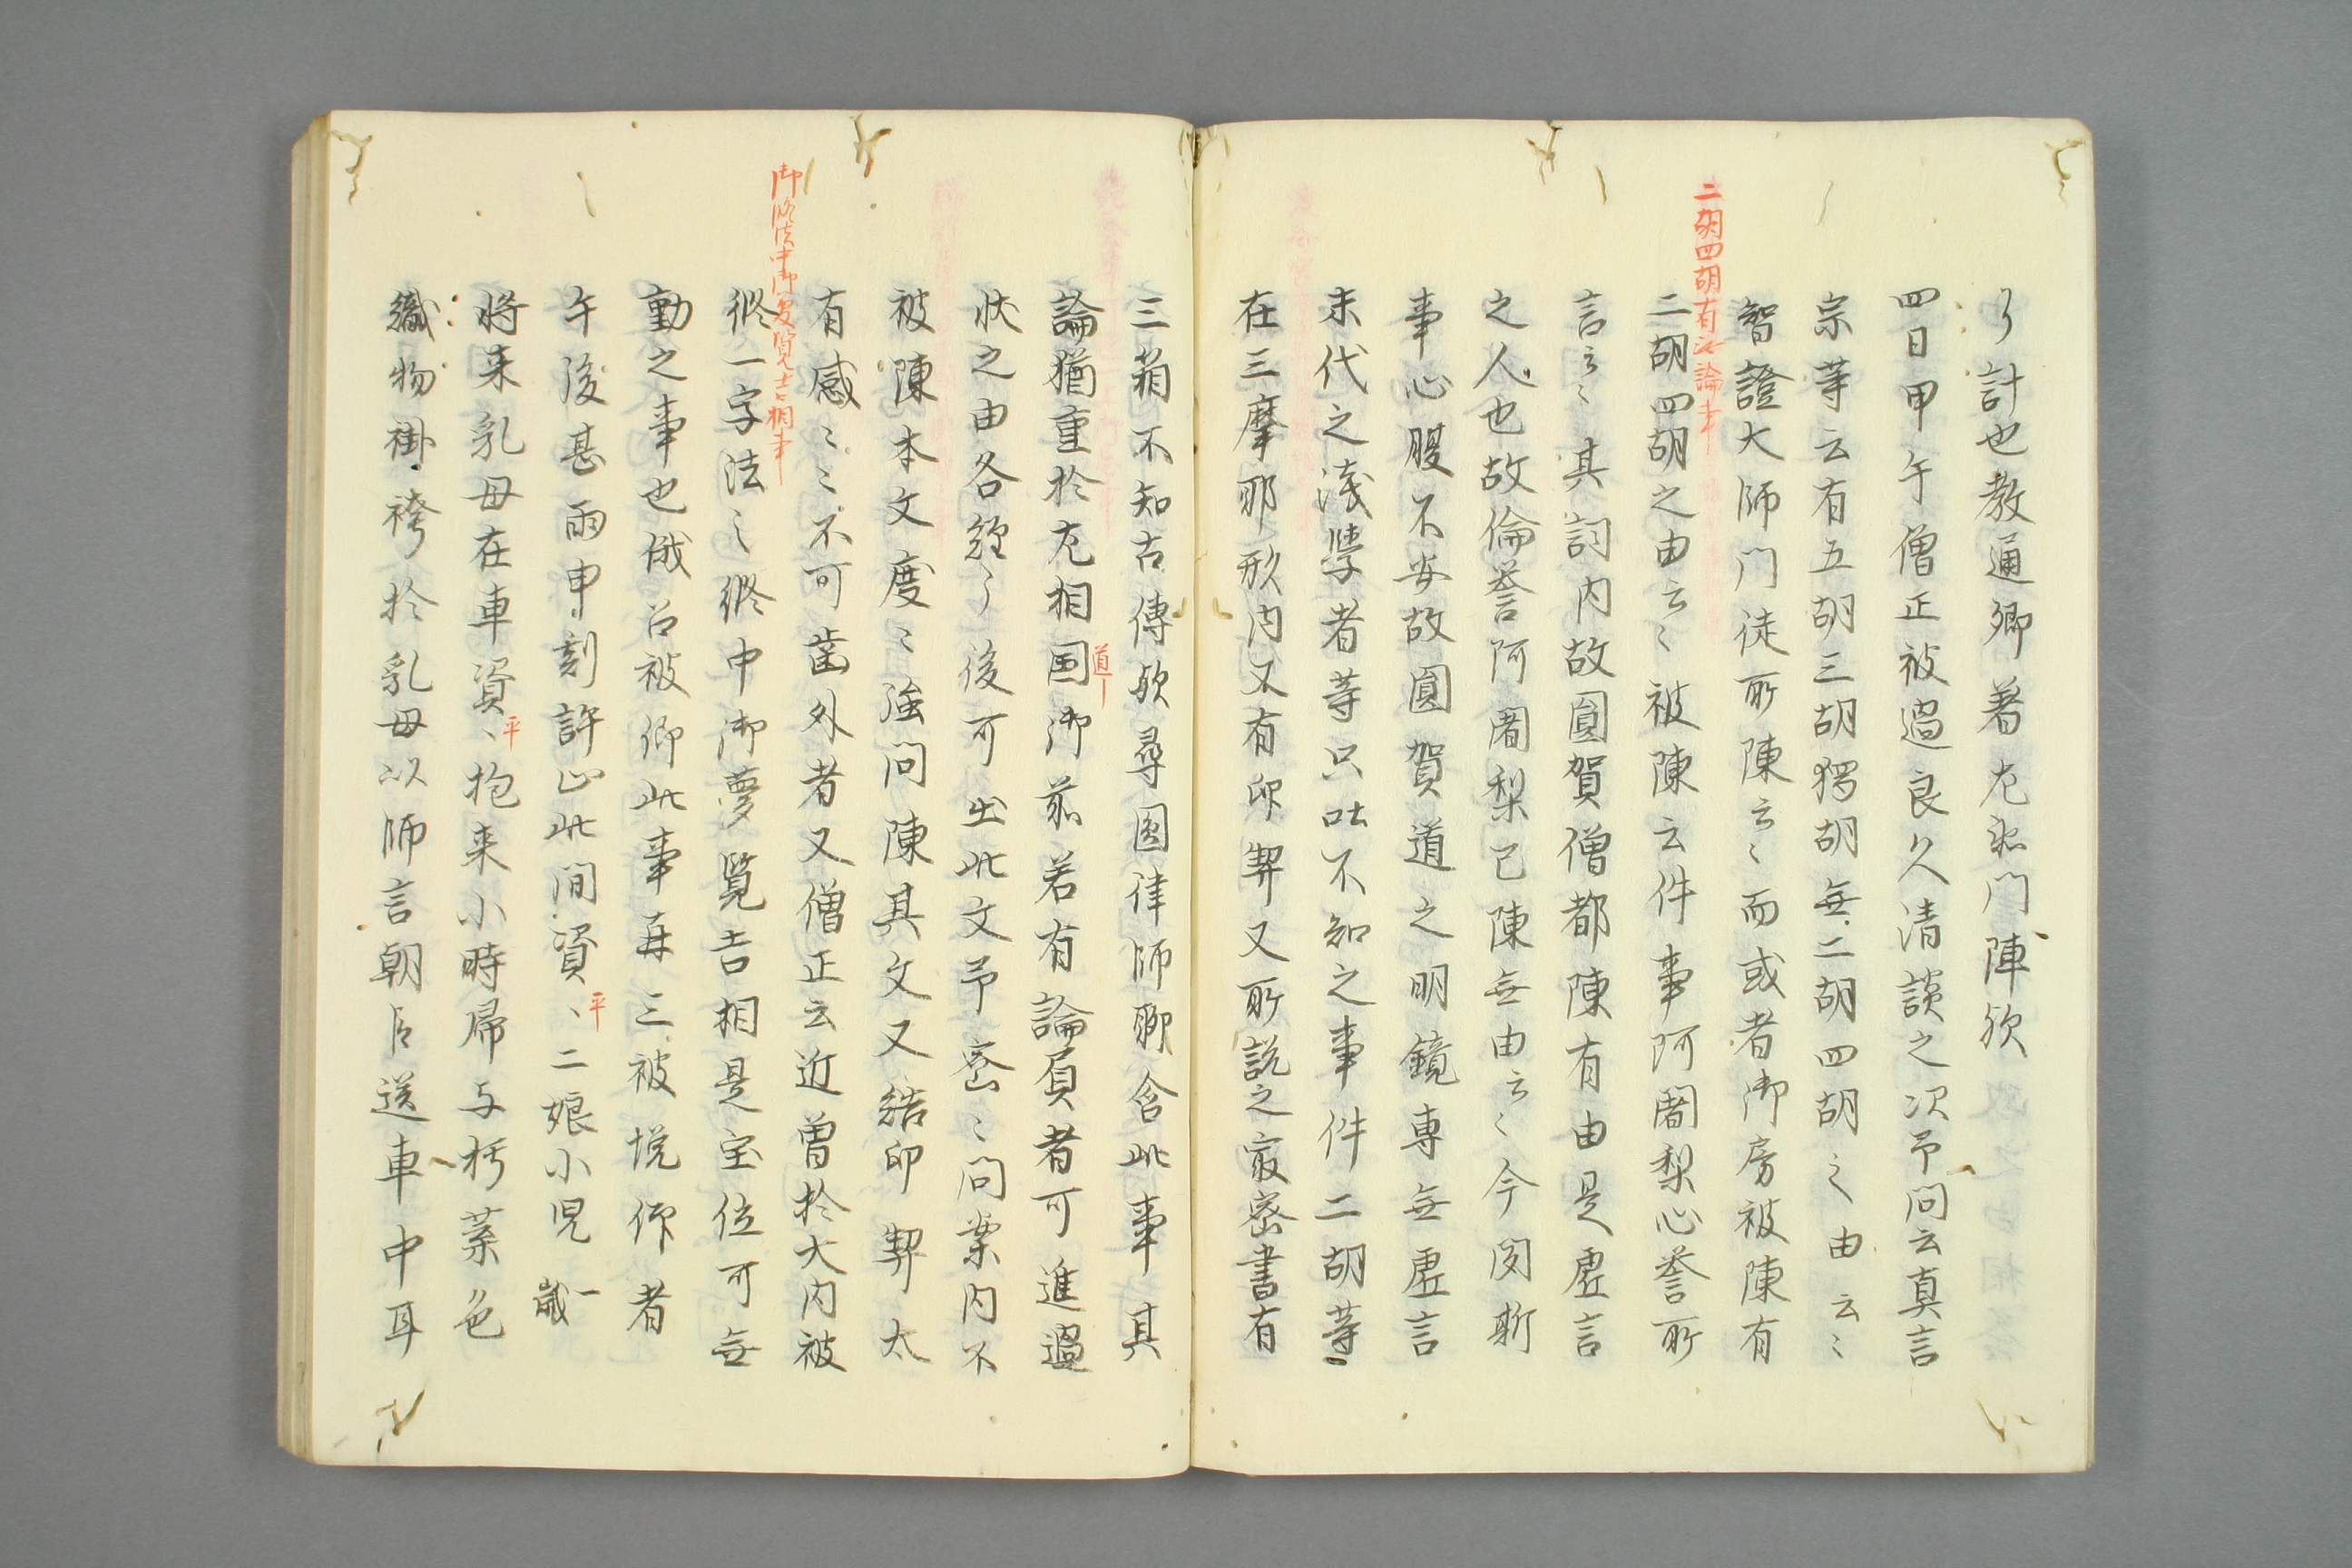 了計也敎通卿著尤乖門陣欤
二胡四胡有無論事
四日甲午僧正被過良久清談之次予問云真言
宗等云有五胡三胡獨胡無二胡四胡之由云〻
智證大師門徒所陳云〻而或者御房被陳有
二胡四胡之由云〻被陳云件事阿闍梨心誉所
言云〻其詞内故圓賀僧都陳有由是虚言
之人也故倫誉阿闍梨已陳無由云〻今聞斯
事心腹不安故圓賀道之明鏡専無虚言
末代之淺學者等只吐不知之事件二胡等
在三摩耶形内又有印契又所説之冣密書有
三箱不知古傳欤尋圓律師聊含此事其
論猶重於左相国御前若有論負者可進過
道
状之由各鐘了後可出此文予密〻問案内不
被陳本文度〻強問陳其文又結印契太
有感〻〻不可歯外者又僧正云近曽於大内被
御修法中御夢覧吉相事
修一字法〻修中御夢覧吉相是宝位可無
動之事也俄召被仰此事再三被悦仰者
午後甚雨申刻許止此間資〻二娘小児一歳
平
将来乳母在車資〻抱来小時帰与朽葉色
平
織物褂袴於乳母以師言朝臣送車中耳